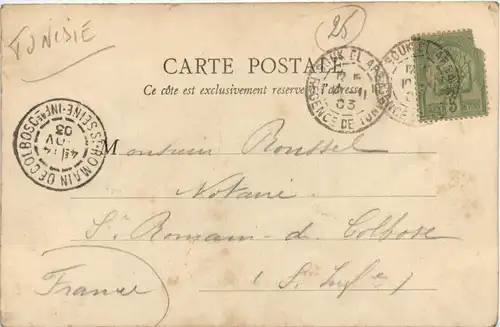 TUNISIE
25
CARTE POSTALE
Ce côté est exclusivement réservé à l'adresse
SOUK EL ARBA
RÉGENCE DE TUNIS
03
SOUK EL ARBA
St ROMAIN DE COLBOSC
SEINE-INFRE
NOV
03
Monsieur Roussel
Notaire
St Romain-de Colbosc
(S. Infre)
France